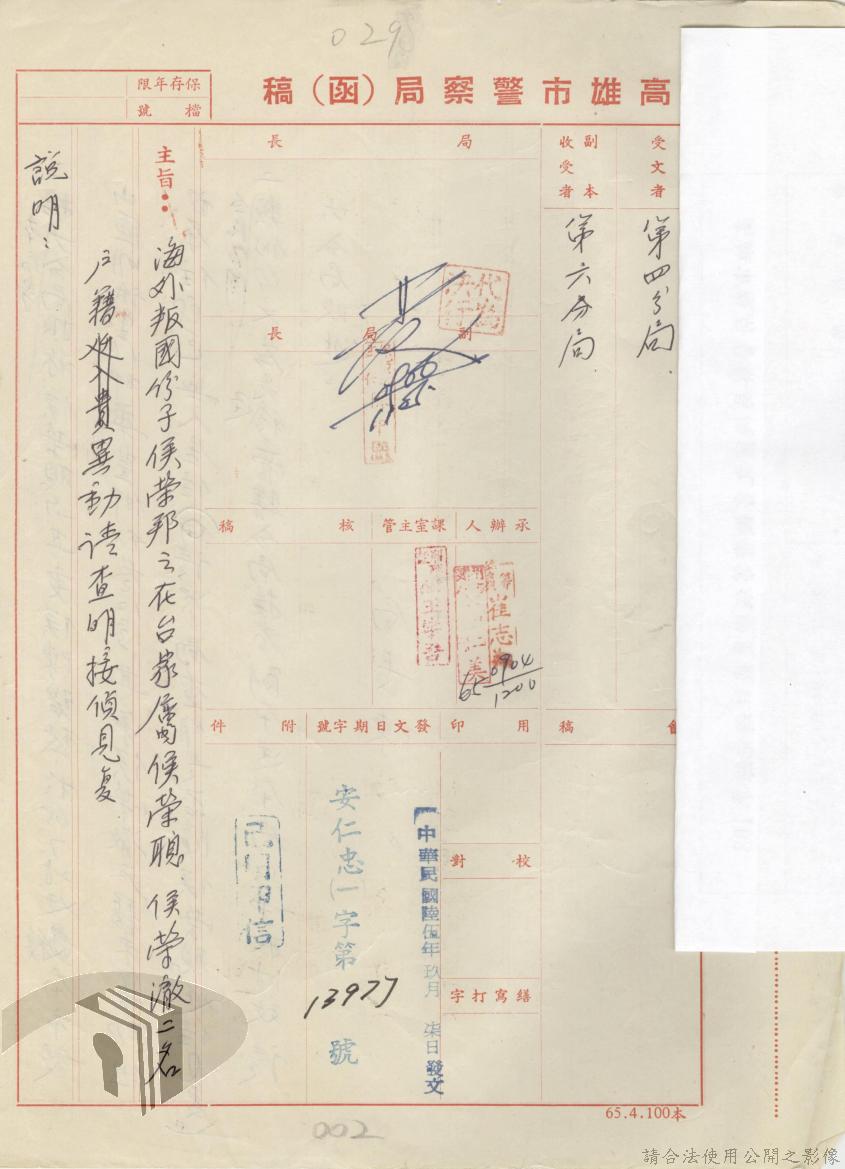 029
高雄市警察局（函）稿
保存年限
檔號
受文者
第四分局.
副本收受者
第六分局.
局長
代為決行
副局長
承辦人
課室主管
核稿
崔志
65 0904
1200
會稿
用印
發文日期字號
附件
校對
繕寫打字
中華民國陸伍年玖月柒日發文
安仁忠(一字第
13977
號
主旨：
海外叛國份子侯榮邦之在台家屬侯榮聰 侯榮澈二名
戶籍異動請查明接偵見复
說明：
65.4.100本
002
請合法使用公開之影像